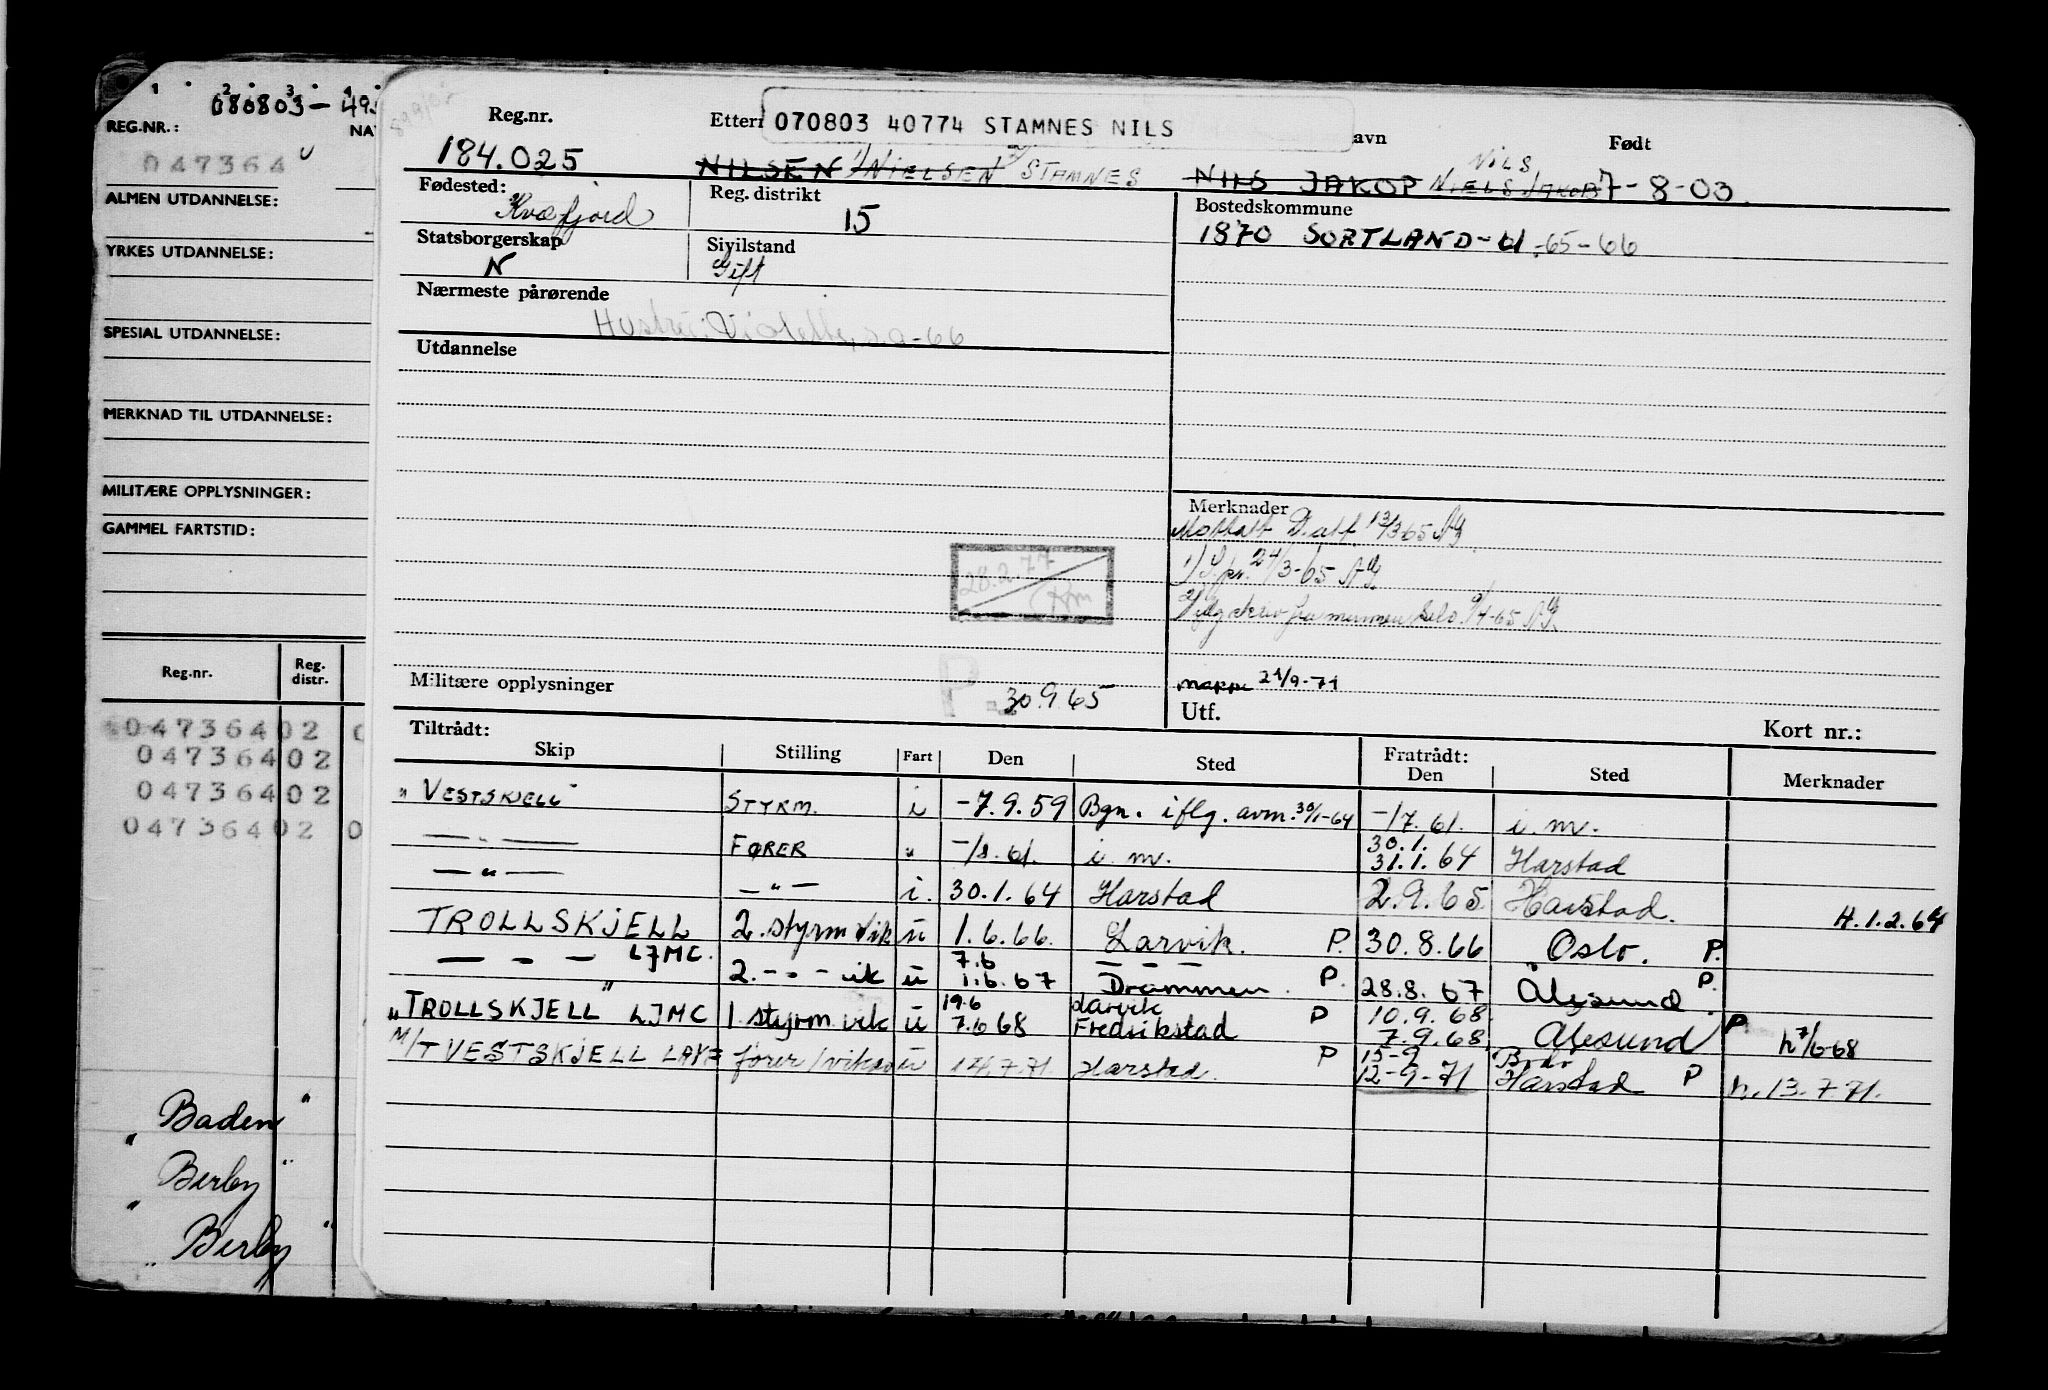 080803-49
REG.NR.:
NA
047364
ALMEN UTDANNELSE:
YRKES UTDANNELSE:
SPESIAL UTDANNELSE:
MERKNAD TIL UTDANNELSE:
MILITÆRE OPPLYSNINGER:
GAMMEL FARTSTID:
Reg.nr.
Reg. distr.
04736402
04736402
04736402
04736402
"Baden"
"Berby"
"Berby"
Reg.nr.
184.025
Etter
070803 40774 STAMNES NILS
avn
Født
NILSEN 1) NIELSEN 2) STAMNES
NILS
NILS JAKOP NIELS JAKOB 7-8-03.
Fødested:
Kvæfjord
Reg. distrikt
15
Bostedskommune
1870 SORTLAND-61.-65-66
Statsborgerskap
N
Siyilstand
Gift
Nærmeste pårørende
Hustru: Violette, s.a-66
Utdannelse
Merknader
Mottatt D.att. 13/3 65
1) 24/3-65
2) 9/4-65
28.2.77
Militære opplysninger
P. 30.9.65
mappe 21/9-71
Utf.
Kort nr.:
Tiltrådt:
Skip
Stilling
Fart
Den
Sted
Fratrådt:
Den
Sted
Merknader
"VESTSKJELL" STYRM. i -7.9.59 Bgn. iflg. avm. 30/1-64 -/7.61. i.m.
— " — FØRER " -/8.61. i.m. 30.1. 31.1.64 Harstad
— " — — " — i. 30.1.64 Harstad 2.9.65 Harstad. H.1.2.64
TROLLSKJELL 2. styrm vik u 1.6.66. Larvik. P. 30.8.66 Oslo. P.
— " — LJMC. 2. - " - vik u 7.6 1.6.67 Drammen. P. 28.8.67 Ålesund P.
"TROLLSKJELL" LJMC 1 styrm vik u 19.6 7.6 68 Larvik Fredrikstad P 10.9.68. 7.9.68. Ålesund P h 7/6-68
M/T VESTSKJELL fører/vikar u 14.7.71. Harstad. P 15-9 12-9-71 Bodø Harstad P h. 13.7.71.